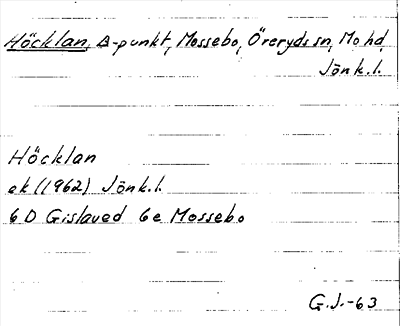 Höcklan, Δ-punkt, Mossebo, Öreryds sn, Mo hd,
Jönk.l.
Höcklan
ek (1962) Jönk.l.
6D Gislaved 6e Mossebo
G.J.-63